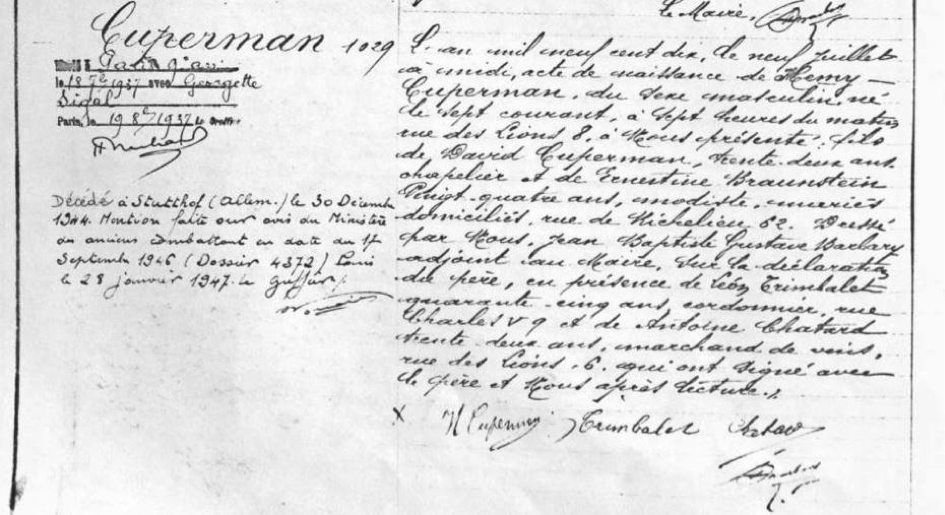 Le Maire,
Cuperman 1029
Marié à Paris 9e arr
le 18 7bre 1937 avec Georgette
Sigal
Paris, le 19 8bre 1937 le Greffier
Décédé à Stutthof (Allem.) le 30 Décembre
1944. Mention faite sur avis du Ministère
des anciens Combattant en date du 17
Septembre 1946 (Dossier 4372) Paris
le 28 janvier 1947. le Greffier
L'an mil neuf cent dix, le neuf Juillet
à midi, acte de naissance de Henry
Cuperman, du sexe masculin, né
le sept courant, à sept heures du matin
rue des Lions 8, à Nous présenté, fils
de David Cuperman, trente deux ans,
chapelier et de Ernestine Braunstein
vingt quatre ans, modiste, mariés
domiciliés, rue de Richelieu 62. Dressé
par Nous, Jean Baptiste Gustave Barbary
adjoint au Maire, sur la déclaration
du père, en présence de Léon Trimbalet
quarante cinq ans, cordonnier, rue
Charles V 9 et de Antoine Chatard
trente deux ans, marchand de vins,
rue des Lions, 6, qui ont signé avec
le père et Nous après lecture.
X Cuperman Trimbalet Chatard